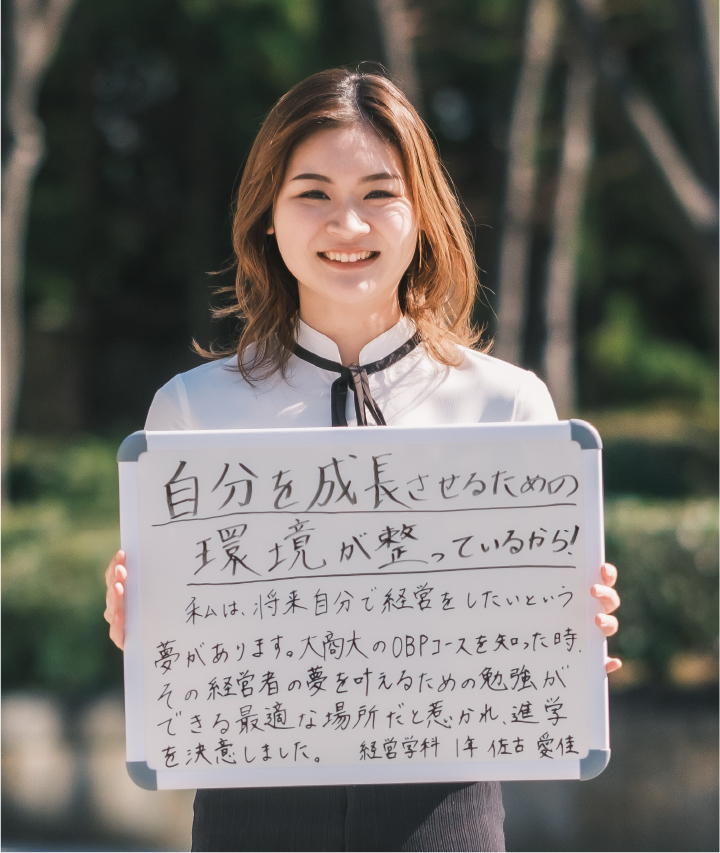 自分を成長させるための
環境が整っているから!
私は、将来自分で経営をしたいという
夢があります。大商大のOBPコースを知った時、
その経営者の夢を叶えるための勉強が
できる最適な場所だと惹かれ、進学
を決意しました。 経営学科 1年 佐古 愛佳